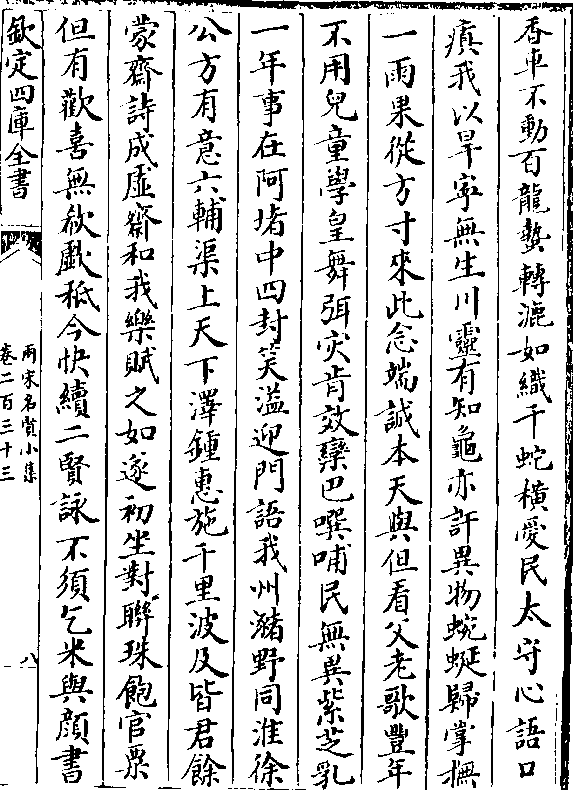 香車不動百龍蟄轉漉如織千蛇横愛民太守心語口
瘨我以旱寧無生川靈有知龜亦許異物蜿蜒歸掌撫
一雨果從方寸來此念端誠本天與但看父老歌豐年
不用兒童學皇舞弭灾肯效欒巴噀哺民無異紫芝乳
一年事在阿堵中四封笑溢迎門語我州瀦野同淮徐
公方有意六輔渠上天下澤鍾惠施千里波及皆君餘
蒙齋詩成虛齋和我樂賦之如遂初坐對聯珠飽官粟
但有歡喜無欷歔秪今快續二賢詠不須乞米與顔書
欽定四庫全書
兩宋名賢小集
卷二百三十三
八